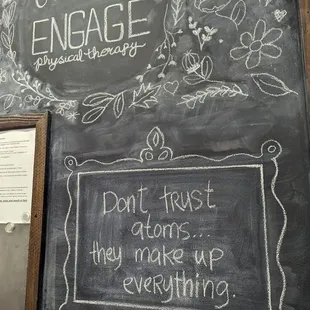 ENGAGE
physical therapy
Don't trust
atoms...
they make up
everything.